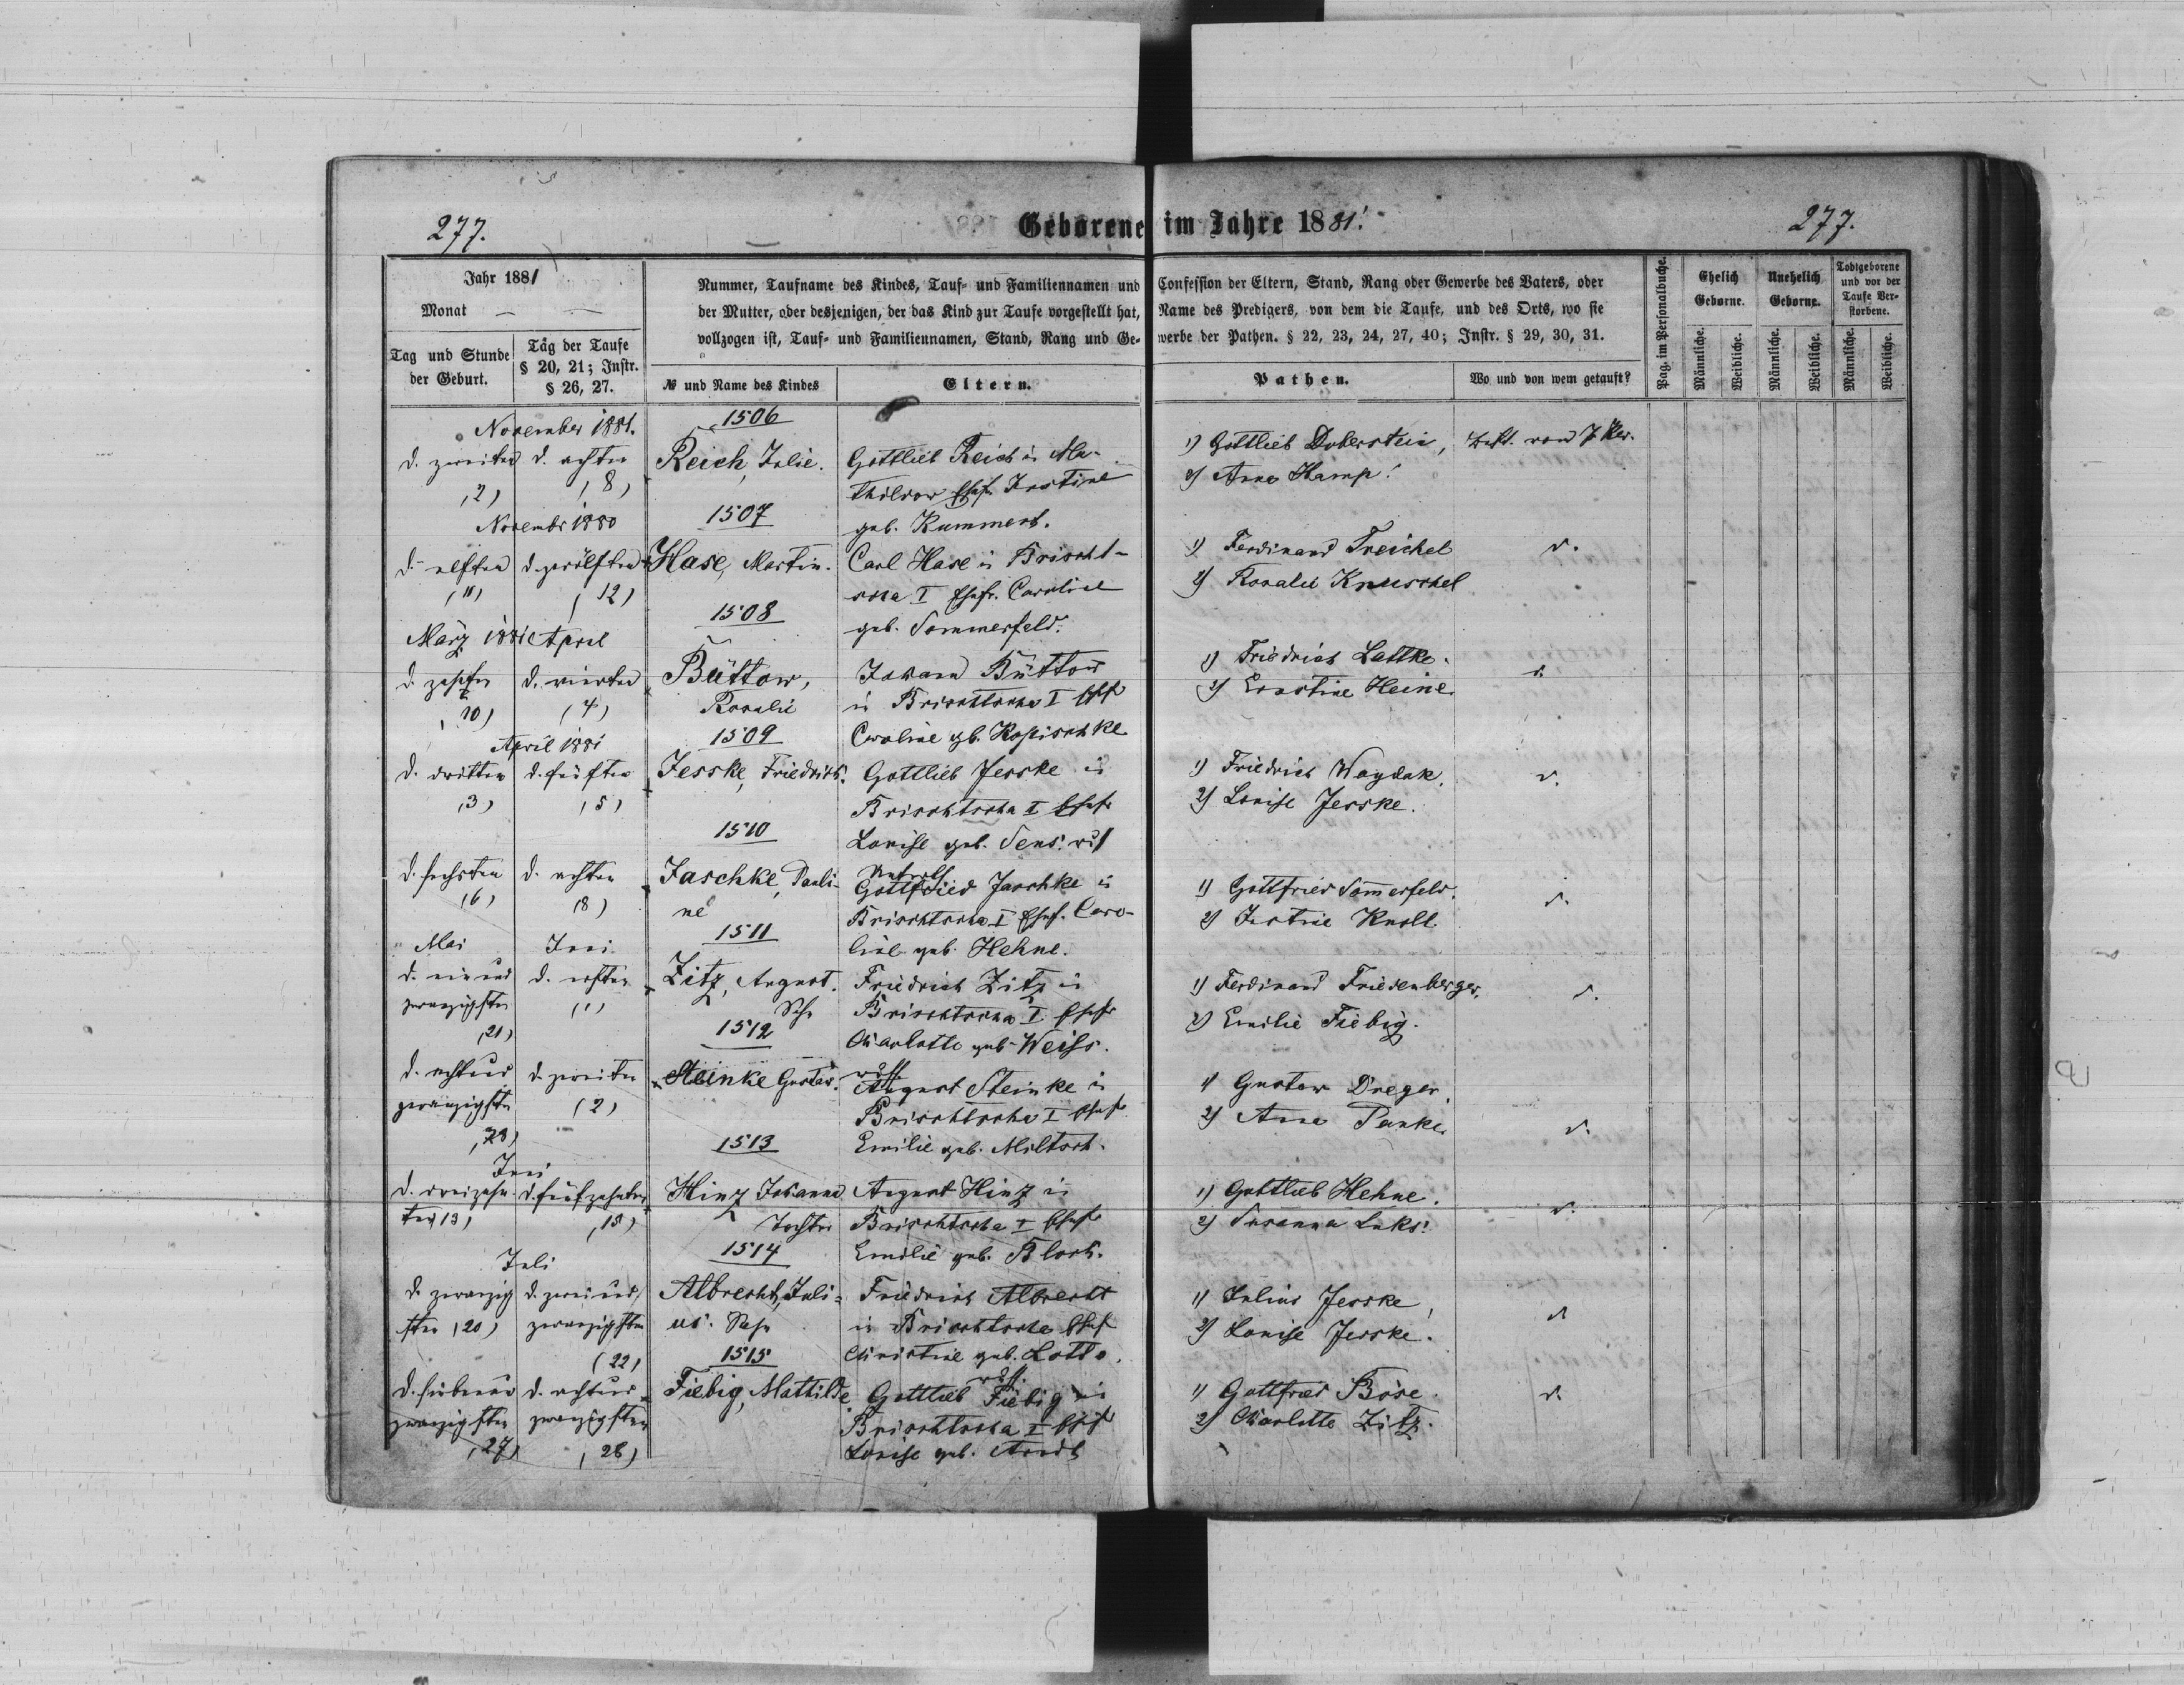 277.
Geborene im Jahre 1881.
277.
Jahr 1881
Monat
Tag und Stunde der Geburt.
Tag der Taufe § 20, 21; Instr. § 26, 27.
Nummer, Taufname des Kindes, Tauf- und Familiennamen und
der Mutter, oder desjenigen, der das Kind zur Taufe vorgestellt hat,
vollzogen ist, Tauf- und Familiennamen, Stand, Rang und Ge-
№ und Name des Kindes
Eltern.
Confession der Eltern, Stand, Rang oder Gewerbe des Vaters, oder
Name des Predigers, von dem die Taufe, und des Orts, wo sie
werbe der Pathen. § 22, 23, 24, 27, 40; Instr. § 29, 30, 31.
Pathen.
Wo und von wem getauft?
Pag. im Personalbuche.
Ehelich Geborne.
Unehelich Geborne.
Todtgeborene und vor der Taufe Verstorbene.
Männliche.
Weibliche.
Männliche.
Weibliche.
Männliche.
Weibliche.
November 1881.
d. zweiten
(2)
d. achten
(8)
1506
Reich, Julie.
Gottlieb Reich in Ma-
thildow Ehefr. Justine
geb. Rummert.
1) Gottlieb Doberstein,
2) Anna Hamp.
November 1880
d. elften
(11)
d. zwölften
(12)
1507
Hase, Martin.
Carl Hase in Brischt-
scha I Ehefr. Caroline
geb. Sommerfeld.
1) Ferdinand Treichel
2) Rosalie Knuschel
d.
März 1881 April
d. zehnten
(10)
d. vierten
(4)
1508
Büttow,
Rosalie
Johann Büttow
in Brischtscha I Ehf
Caroline gb. Kopischke
1) Friedrich Lattke.
2) Ernstine Heine.
d.
April 1881
d. dritten
(3)
d. fünften
(5)
1509
Jesske, Friedrich.
Gottlieb Jesske in
Brischtscha I Ehefr
Louise geb. Sens.
1) Friedrich Waydak.
2) Louise Jesske.
d.
d. sechsten
(6)
d. achten
(8)
1510
Jaschke, Pauli-
ne
Gottfried Jaschke in
Brischtscha I Ehef. Caro-
line geb. Hehne.
1) Gottfried Sommerfeld.
2) Justine Knoll.
d.
Mai
Juni
d. ein und
zwanzigsten
(21)
d. ersten
(1)
1511
Zitz, August.
Sohn
Friedrich Zitz in
Brischtscha I Ehefr
Charlotte geb. Weiss.
1) Ferdinand Friedenberger.
2) Emilie Fiebig.
d.
d. acht und
zwanzigsten
(28)
d. zweiten
(2)
1512
Steinke Gustav.
August Steinke in
Brischtscha I Ehefr
Emilie geb. Miltsch.
1) Gustav Dreger.
2) Anna Panke.
d.
Juni
d. dreizehn-
ten 13)
d. fünfzehnten
(15)
1513
Hinz Johanna
Tochter
August Hinz in
Brischtscha I Ehefr
Emilie geb. Bloch.
1) Gottlieb Hehne.
2) Susanna Luks.
d.
Juli
d. zwanzig-
sten (20)
d. zwei und
zwanzigsten
(22)
1514
Albrecht, Juli-
us. Sohn
Friedrich Albrecht
in Brischtscha Ehef
Christine geb. Lotto.
1) Julius Jesske,
2) Louise Jesske.
d.
d. sieben und
zwanzigsten
(27)
d. acht und
zwanzigsten
(28)
1515
Fiebig, Mathilde
Gottlieb Fiebig in
Brischtscha I Ehef
Louise geb. Arndt
1) Gottfried Böse.
2) Charlotte Zitz.
d.